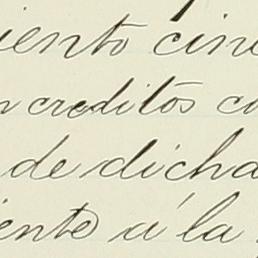 iento cinc
n creditos co
de dicha
iente á la